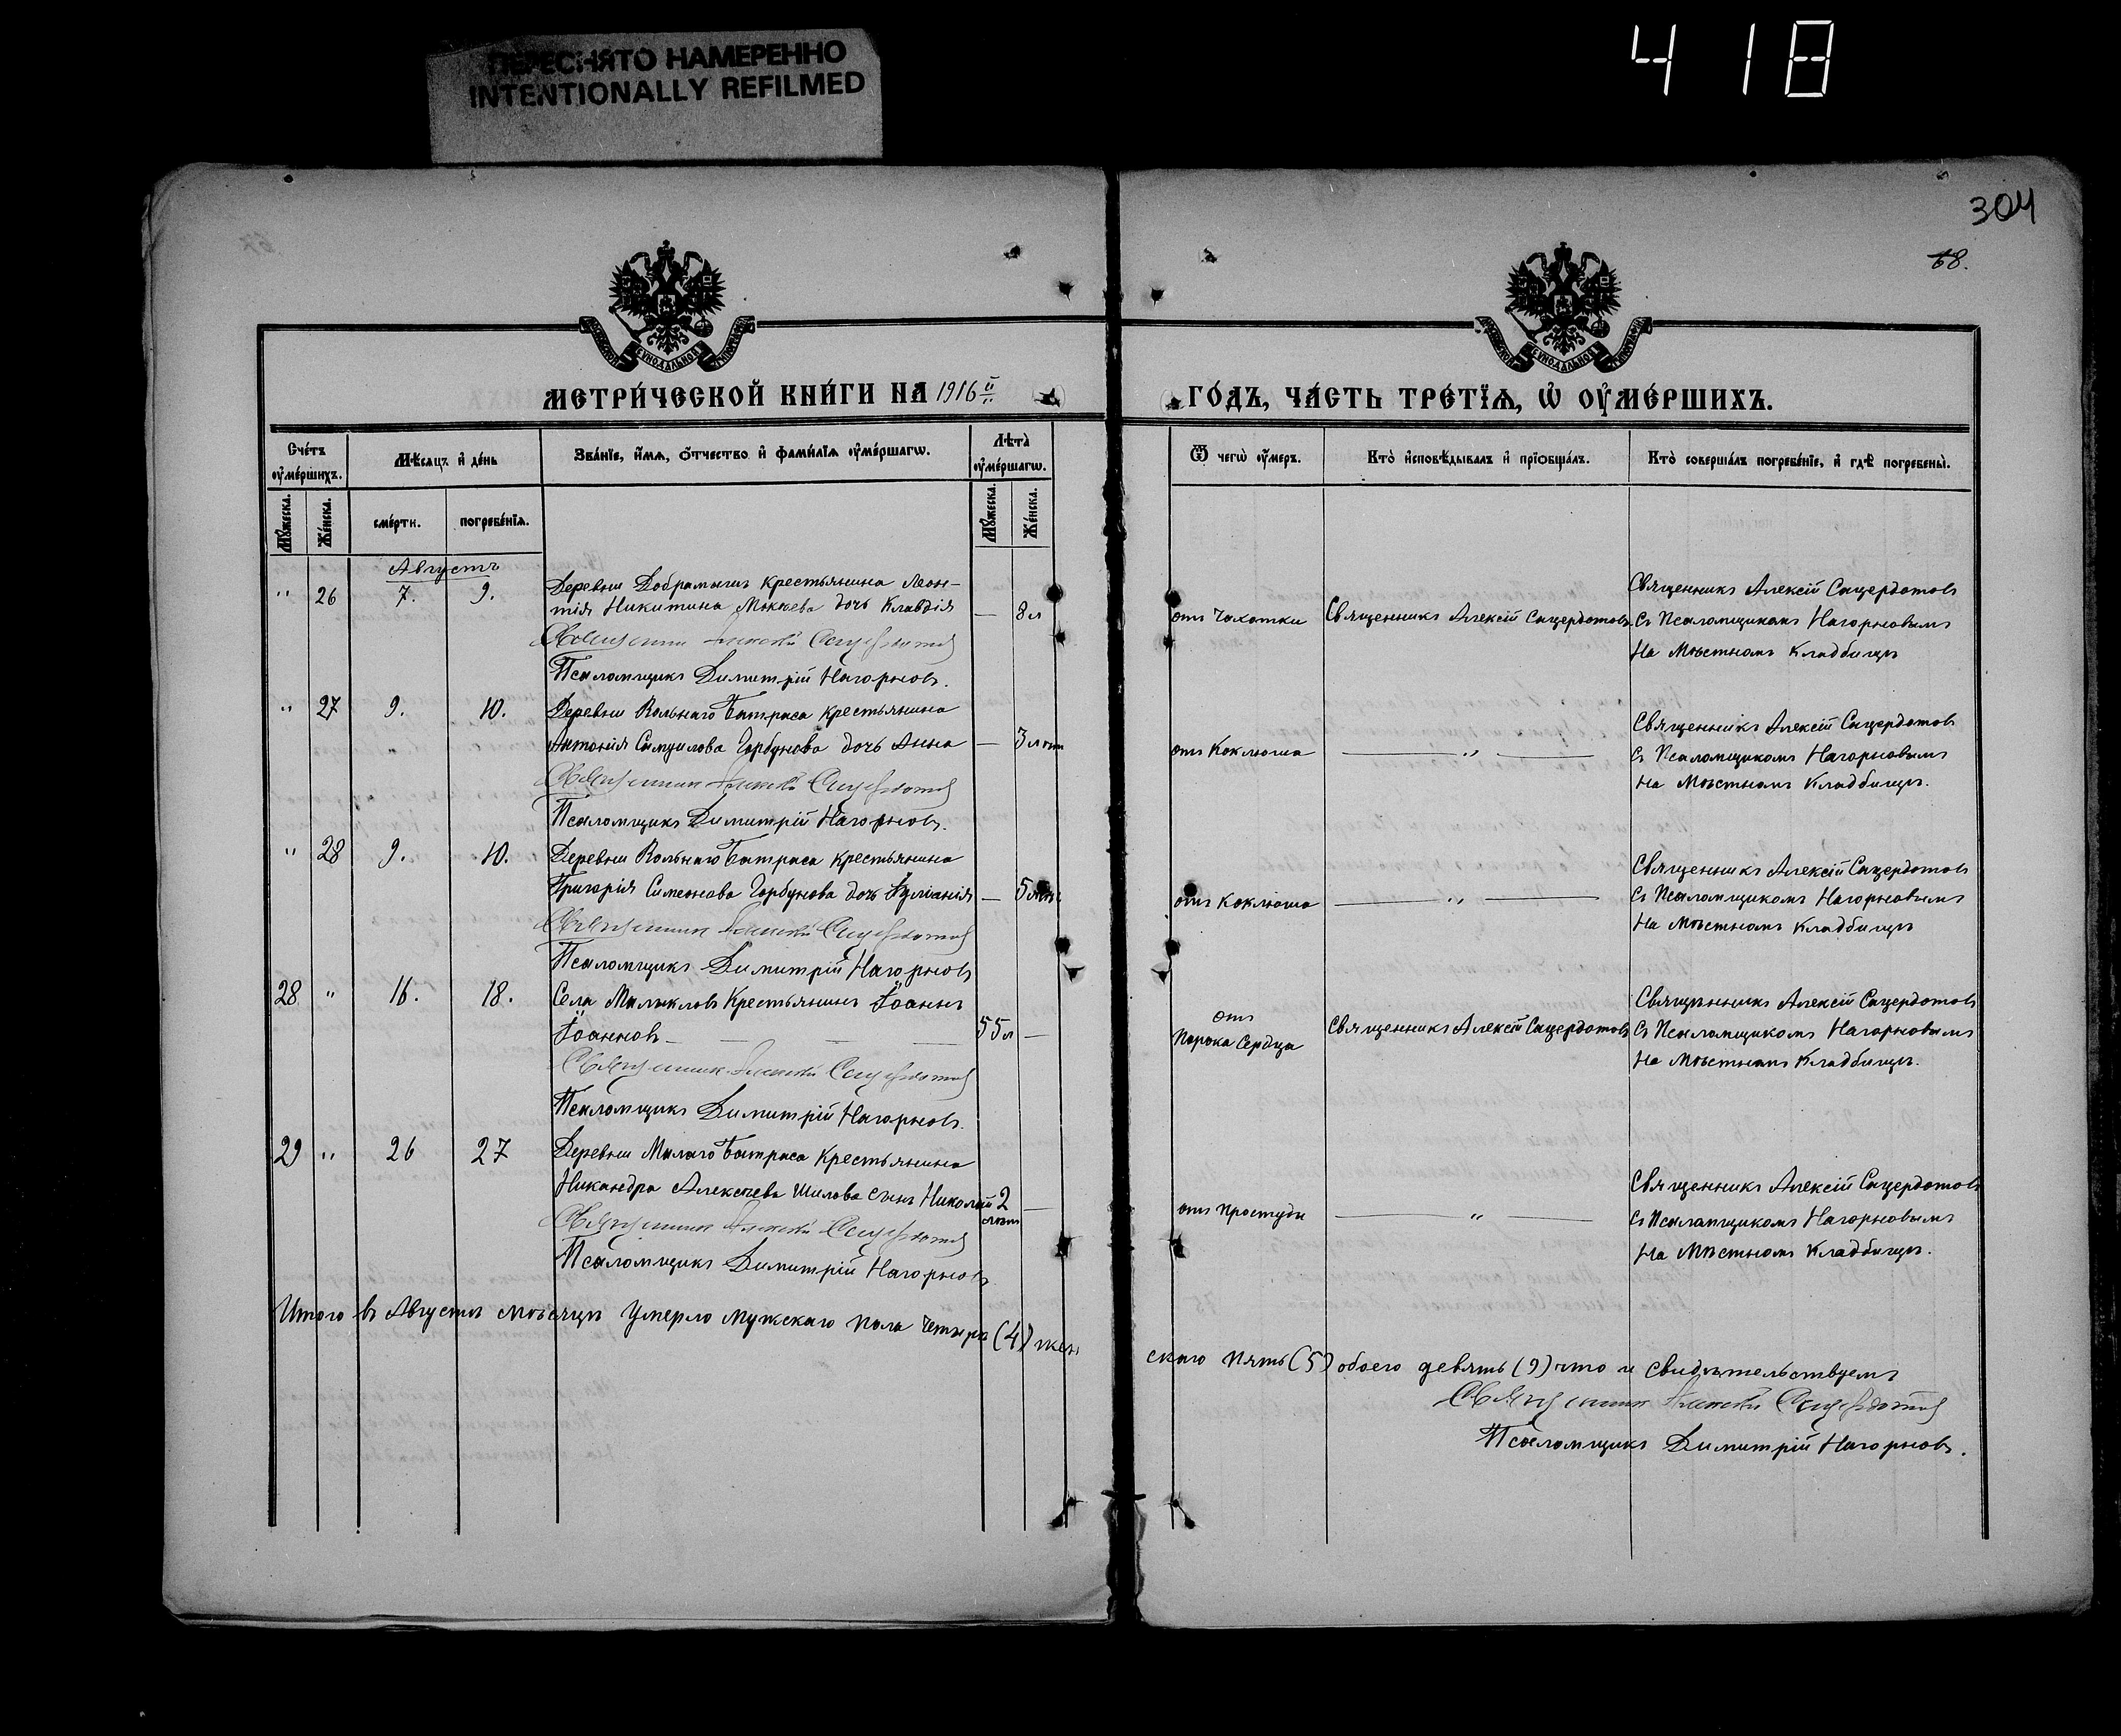 ПЕРЕСНЯТО НАМЕРЕННО
INTENTIONALLY REFILMED
418
304
68.
МЕТРИ́ЧЕСКОЙ КНИ́ГИ НА 1916 й
ГО́ДЪ, ЧА́СТЬ ТРЕ́ТЇѦ, Ѡ҆ ОУ҆МЕ́РШИХЪ.
Сче́тъ оу҆ме́ршихъ.
Мꙋ́жеска.
Же́нска.
Мѣ́сѧцъ и҆ де́нь
сме́рти.
погребе́нїѧ.
Зва́нїе, и҆́мѧ, ѻ҆́тчество и҆ фами́лїѧ оу҆ме́ршагѡ.
Лѣ́та оу҆ме́ршагѡ.
Мꙋ́жеска.
Же́нска.
Ѿ чегѡ̀ оу҆́меръ.
Кто̀ и҆сповѣ́дывалъ и҆ прїѻбща́лъ.
Кто̀ соверша́лъ погребе́нїе, и҆ гдѣ̀ погребены̀.
Августъ
" 26 7. 9. Деревни Добрамышъ крестьянина Леон-
тія Никитина Мокеева дочь Клавдія — 8 л
Священникъ Алексій Сацердотов
Псаломщикъ Димитрій Нагорновъ.
отъ Чахотки Священникъ Алексій Сацердотовъ
Священникъ Алексій Сацердотовъ
Съ Псаломщикомъ Нагорновымъ
На Мѣстномъ Кладбищѣ
" 27 9. 10. Деревни Вольнаго Батраса крестьянина
Антонія Самуилова Горбунова дочь Анна — 3 лѣт
Священник Алексій Сацердотов
Псаломщикъ Димитрій Нагорновъ.
отъ Коклюша — " —
Священникъ Алексій Сацердотовъ
Съ Псаломщикомъ Нагорновымъ
На Мѣстномъ Кладбищѣ.
" 28 9. 10. Деревни Вольнаго Батраса крестьянина
Григорія Симеонова Горбунова дочь Іуліанія — 5 лѣтъ
Священник Алексій Сацердотов
Псаломщикъ Димитрій Нагорновъ
отъ Коклюша — " —
Священникъ Алексій Сацердотовъ
Съ Псаломщикомъ Нагорновымъ
На Мѣстномъ Кладбищѣ
28 " 16. 18. Села Крестьянинъ Іоаннъ
Іоанновъ — — — — 55 л —
Священник Алексій Сацердотов
Псаломщикъ Димитрій Нагорновъ.
отъ
Порока Сердца Священникъ Алексій Сацердотовъ
Священникъ Алексій Сацердотовъ
Съ Псаломщикомъ Нагорновымъ
На Мѣстномъ Кладбищѣ.
29 " 26 27 Деревни Малаго Батраса Крестьянина
Никандра Алексѣева Шилова сынъ Николай 2 лѣт —
Священник Алексій Сацердотов
Псаломщикъ Димитрій Нагорновъ
отъ Простуды — " —
Священникъ Алексій Сацердотовъ
Съ Псаломщикомъ Нагорновымъ
На Мѣстномъ Кладбищѣ.
Итого въ Августѣ мѣсяцѣ Умерло мужскаго пола четыре (4) жен
скаго пять (5) обоего девять (9) что и свидѣтельствуемъ
Священник Алексій Сацердотов
Псаломщикъ Димитрій Нагорновъ.